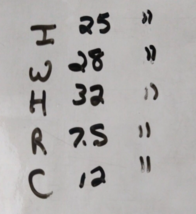 I 25 "
W 28 "
H 32 "
R 7.5 "
C 12 "